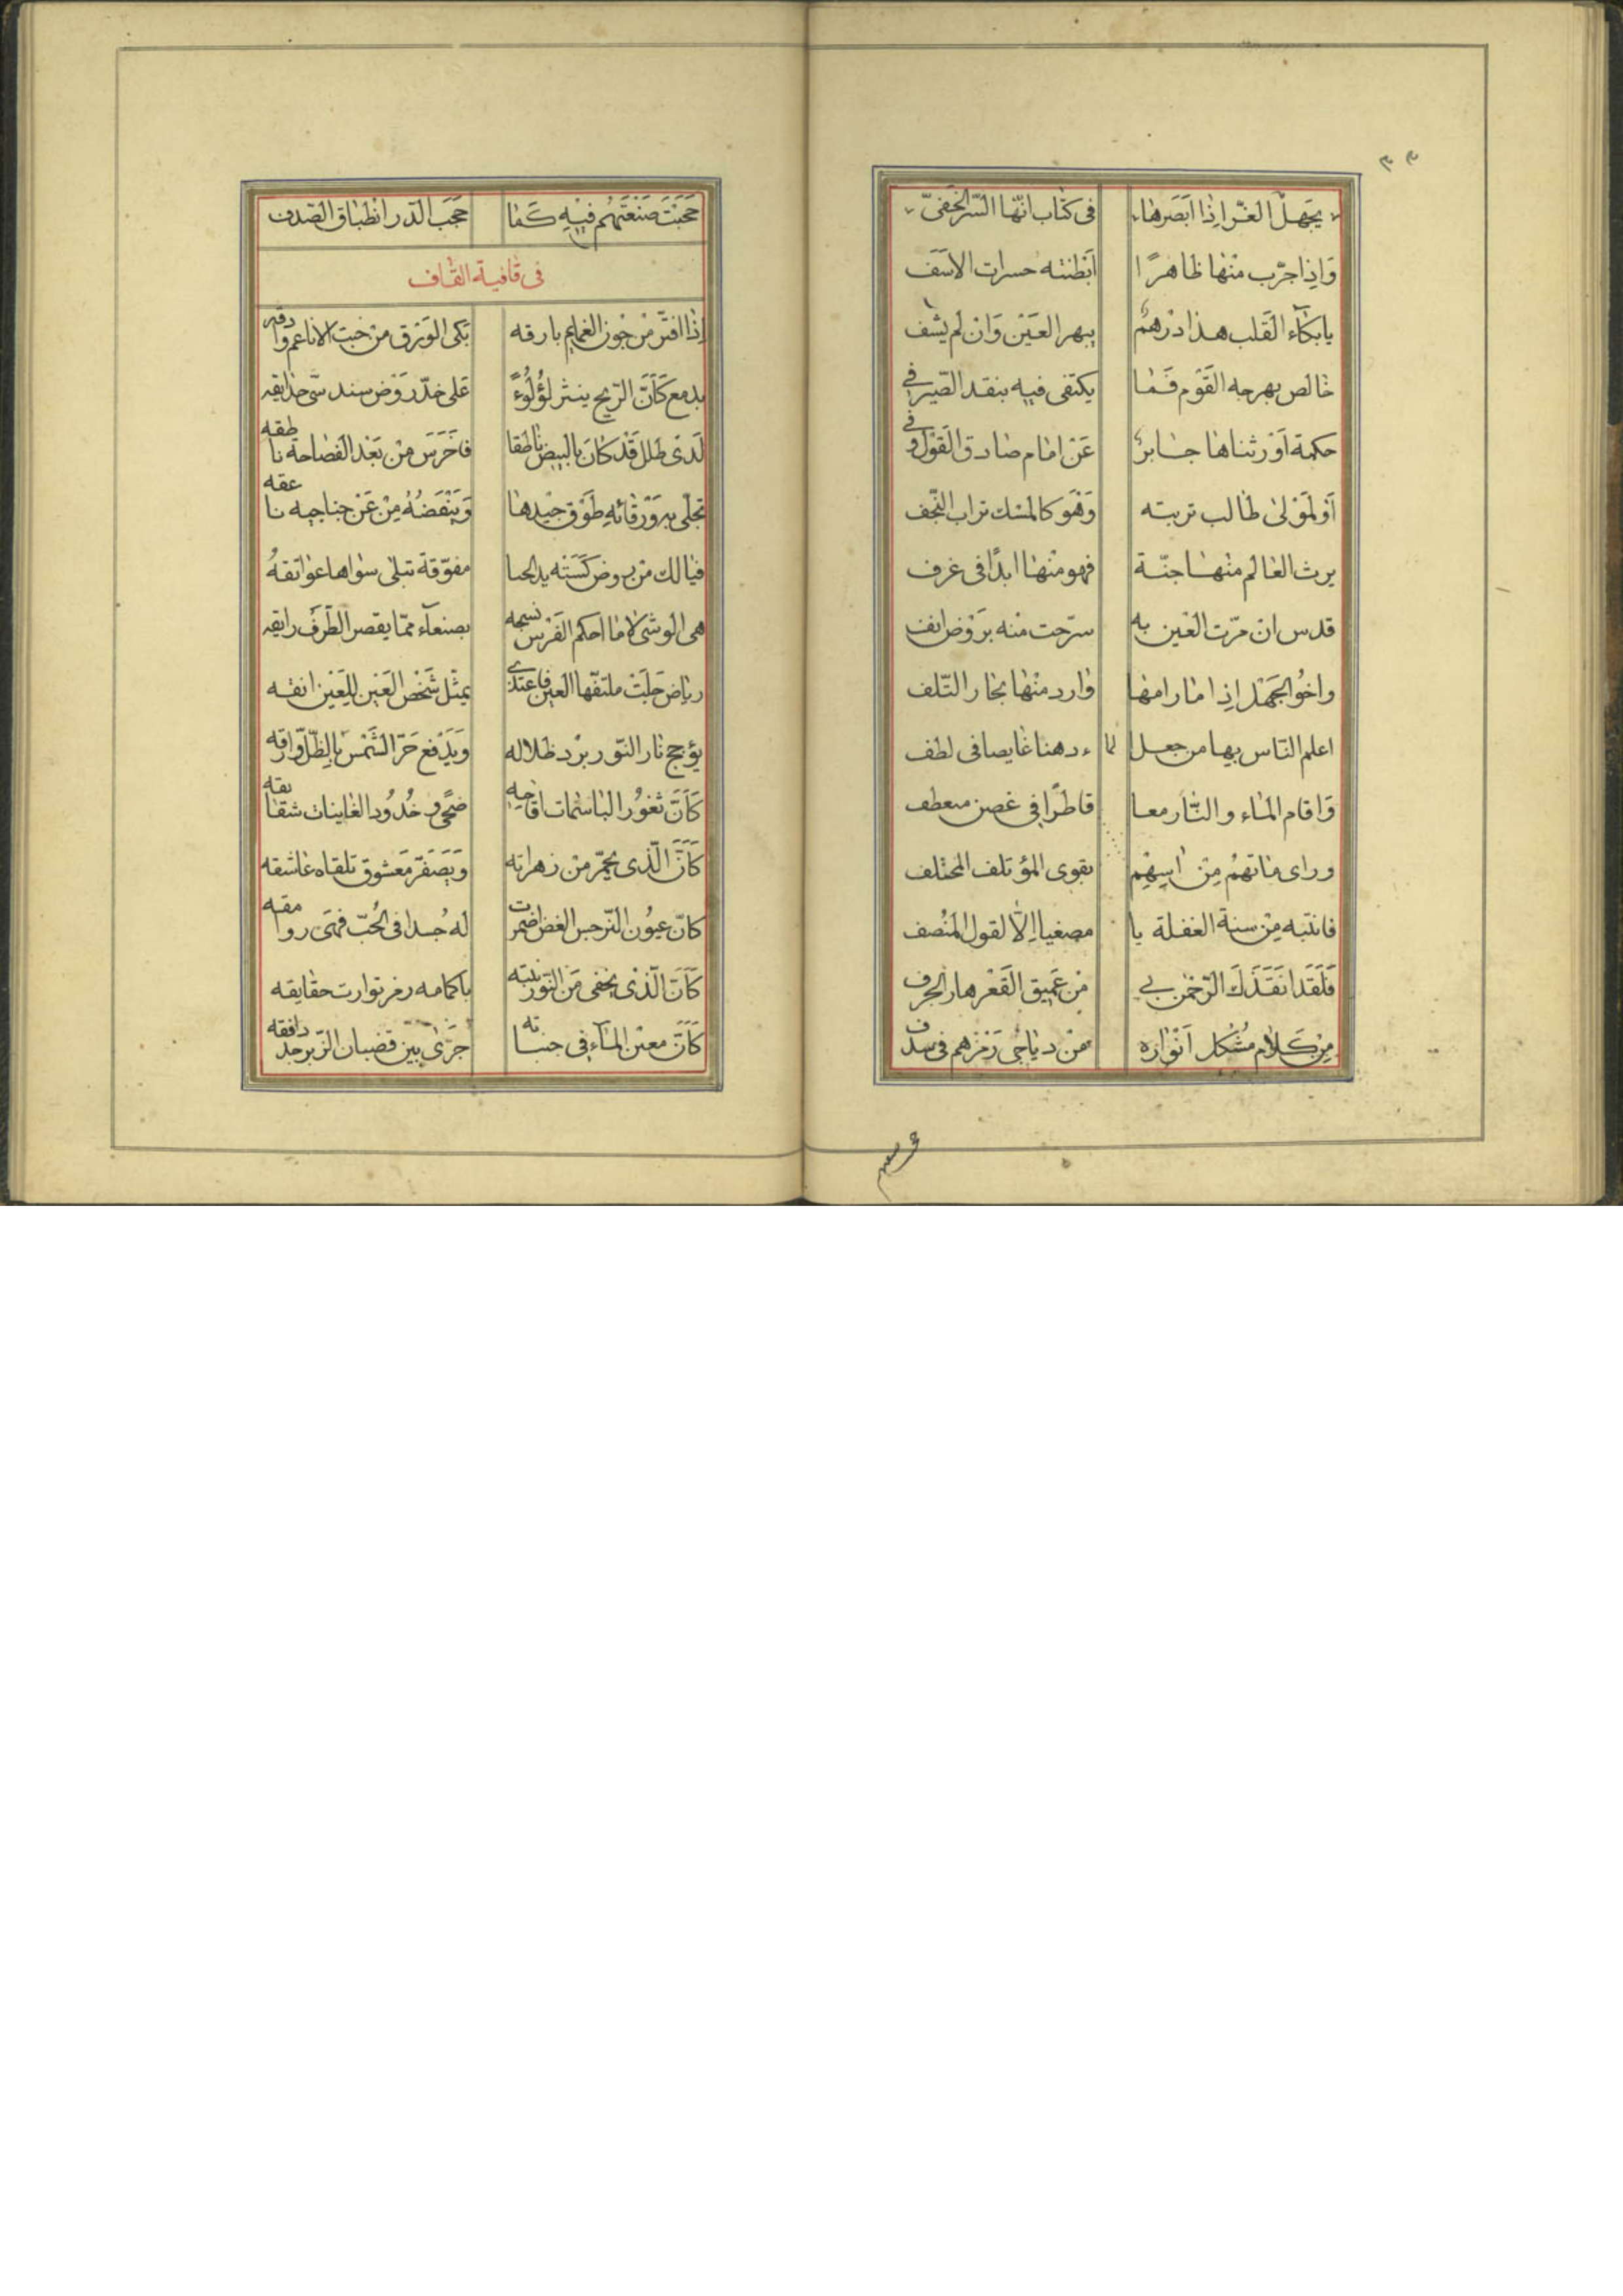 ٣٣
يجهل الغرّ اذا ابصرها في كتاب انّها السّر الخفيّ
وَاِذا جرّب منها ظاهرًا اَبْطنته حسرات الاسَف
يابكآء القَلب هذا درْهم يبهر العَيْن وَانْ لم يشف
خالص بهرجه القَوْم فَما يكتفى فيه بنقد الصّيرفي
حكمة اَوْرثناها جابرٌ عَنْ امام صادق القَوْل وفي
اَوْلمَوْلى طالب تربته وَهْوَ كالمسْك تراب النّجف
يرث العالم منها جنّة فهو منها ابدًا في غرف
قدس ان مرّت العَين به سرّحت منه برَوْض انف
واخُو الجَهْل اِذا ما رامها وارد منها بحار التّلف
اعلم النّاس بها من جعل لما ء دهنا غايصا في لطف
وَاقام الماء والنّار معا قاطرًا في غصن منعطف
وراى ماتهمُ مِنْ اسهم بقوى المؤتلف المختلف
فانتبه مِنْ سنة الغفلة يا مصغيا اِلّا لقول المنُصف
فَلَقَد انقَذَكَ الرّحْمن بي مْن عَميق القَعْر هار الجرف
مِنْ كَلام مُشكل اَنْوارُه مْن دياجي رَمْزهم في سدف
حَجَبَتْ صَنْعَتَهُم فيْهِ كَما حَجَبَ الدّر انْطباق الصّدف
في قافية القاف
اِذا افترّ مْن جَوْن الغمايم بارقه بَكى الوَرْق من خبت الاناعم وادقه
بدمع كَاَنَّ الرّيح ينثر لؤُلُوءً عَلى خدّ رَوْض سندسىّ حدايقه
لَدى طلل قَدْ كانَ بالبيض ناطقا فاَخرَسَ مْن بَعْد الفصاحة ناطقه
تجلّى بهِ وَرْقائه طوْق جيْدها وَيَنْفضُهُ مِنْ عَنْ جناحيه ناعقه
فيالك مْن روض كسَتْه يد الحيا مفوّقة تبلى سواها عواتقهُ
هى الوشى لا ما احكم الفَرْس نسجه بصنعآء ممّا يقصر الطّرفُ رايقه
رياض جَلَتْ ملتفّها العين فاعتدى يمثّل شَخْص العَيْن للِعَيْن انقه
يؤجج نار النّور برْد ظلاله وَيَدْفع حَرّ الشَمْس بالظّلّ وارقه
كَاَنَّ ثغوُر الباسمات اقاحِه ضحًى وخُدُود الغاينات شقايقه
كَاَنَّ الّذى يحمرّ من زهراته وَيَصفَرّ مَعشوق تلقاه عاشقه
كانّ عيُون النّرجس الغض اضمرت لهُ جُسدا في الحُبّ فهَى روامقه
كَاَنَّ الّذىْ يخفى مَن النّور نبته باكمامه رمز توارت حقايقه
كَاَنَّ معيْن المآء في جنباته جَرَى بين قضبان الزّبرجد دافقه